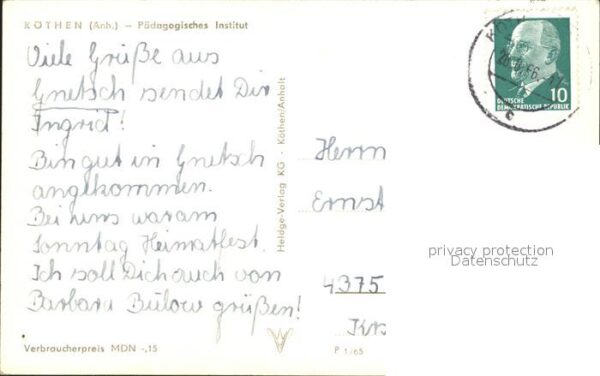 KÖTHEN (Anh.) – Pädagogisches Institut
Viele Grüße aus
Gnetsch sendet Dir
Ingrid!
Bin gut in Gnetsch
angekommen.
Bei uns waram
Sonntag Heimatfest.
Ich soll Dich auch von
Barbara Bülow grüßen!
Verbraucherpreis MDN -,15
Heldge-Verlag KG · Köthen/Anhalt
10
DEUTSCHE
DEMOKRATISCHE REPUBLIK
Herrn
Ernst
privacy protection
Datenschutz
4375
Krs
P 1/65